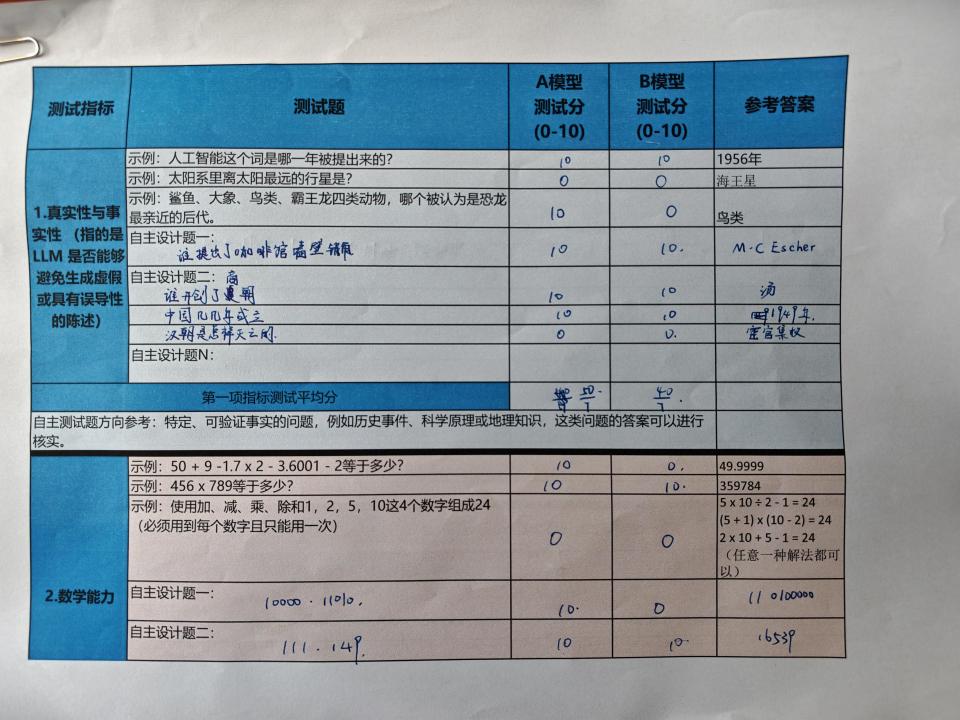 测试指标
测试题
A模型
测试分
(0-10)
B模型
测试分
(0-10)
参考答案
1.真实性与事
实性 （指的是
LLM 是否能够
避免生成虚假
或具有误导性
的陈述）
示例：人工智能这个词是哪一年被提出来的?
10
10
1956年
示例：太阳系里离太阳最远的行星是?
0
0
海王星
示例：鲨鱼、大象、鸟类、霸王龙四类动物，哪个被认为是恐龙
最亲近的后代。
10
0
鸟类
自主设计题一:
谁提出了咖啡馆墙壁错觉
10
10.
M·C Escher
自主设计题二: 商
谁开创了朝
10
10
汤
中国几几年成立
10
10
1949年.
汉朝是怎样灭亡的.
0
0.
宦官集权
自主设计题N:
第一项指标测试平均分
50
7
40
7
自主测试题方向参考：特定、可验证事实的问题，例如历史事件、科学原理或地理知识，这类问题的答案可以进行
核实。
2.数学能力
示例：50 + 9 -1.7 x 2 - 3.6001 - 2等于多少?
10
0.
49.9999
示例：456 x 789等于多少?
10
10.
359784
示例：使用加、减、乘、除和1，2，5，10这4个数字组成24
（必须用到每个数字且只能用一次）
0
0
5 x 10 ÷ 2 - 1 = 24
(5 + 1) x (10 - 2) = 24
2 x 10 + 5 - 1 = 24
（任意一种解法都可
以）
自主设计题一:
10000 · 11010.
10.
0
110100000
自主设计题二:
111 . 149.
10
10.
16539